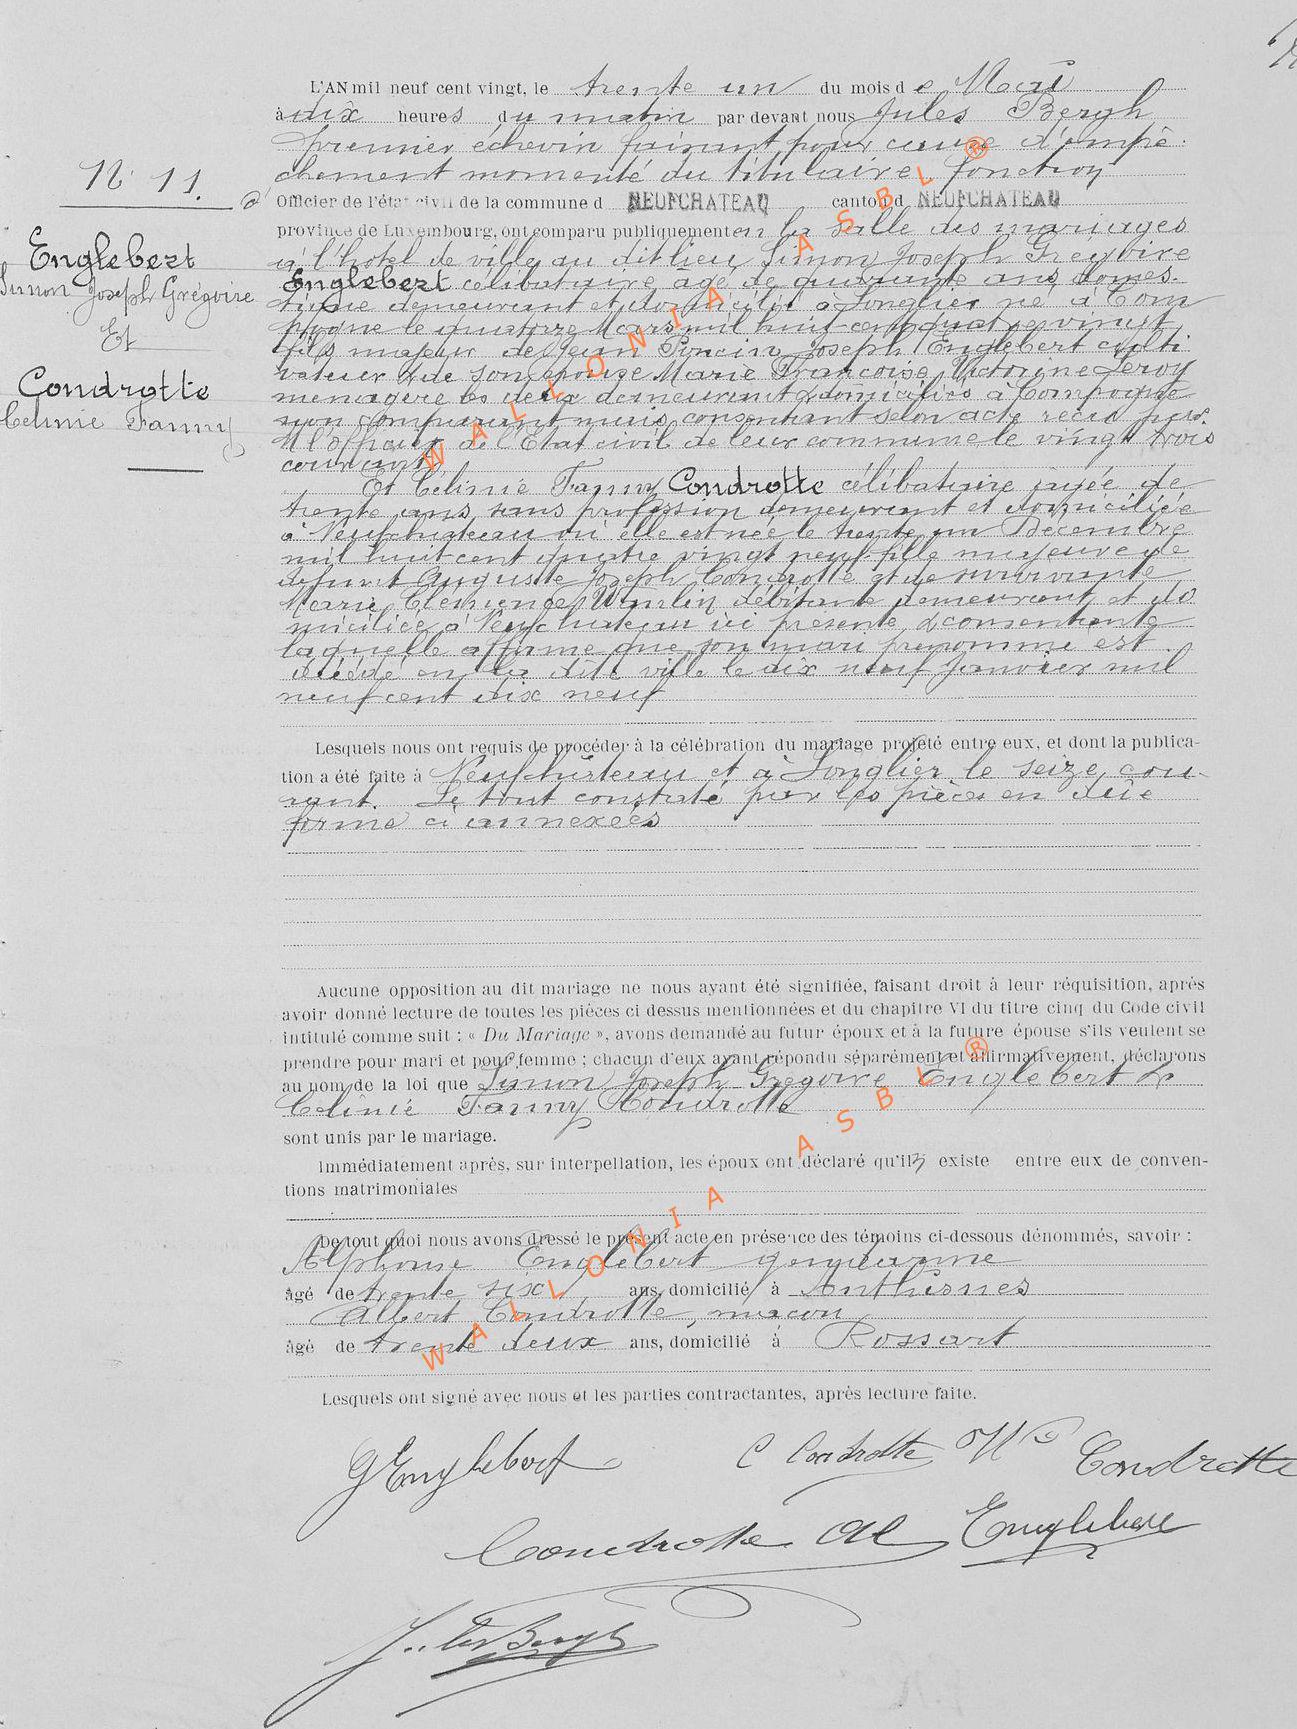 L'AN mil neuf cent vingt, le trente un du mois de Mai
à dix heures du matin par devant nous Jules Bergh
premier échevin faisant pour cause d'empê-
chement momenté du titulaire fonction
N° 11. d'
Officier de l'état civil de la commune d NEUFCHATEAU canton d NEUFCHATEAU
province de Luxembourg, ont comparu publiquement en la salle des mariages
à l'hôtel de ville au dit lieu Simon Joseph Grégoire
Englebert
Simon Joseph Grégoire
Et
Condrotte
Célinie Fanny
Englebert célibataire âgé de quarante ans, domes-
tique demeurant et domicilié à Longlier né à Com
pogne le quatorze Mars mil huit cent quatre vingt
fils majeur de Jean Poncin Joseph Englebert culti
vateur & de son épouse Marie Françoise Victorine Leroy
ménagère les deux demeurant & domiciliés à Compogne
non comparant mais consentant selon acte reçu par
M l'officier de l'Etat civil de leur commune le vingt trois
courant
Et Célinie Fanny Condrotte célibataire âgée de
trente ans sans profession demeurant et domiciliée
à Neufchâteau où elle est née le trente un Décembre
mil huit cent quatre vingt neuf fille majeure de
défunt Auguste Joseph Condrotte et de survivante
Marie Clémence débitante demeurant et do
miciliée à Neufchâteau ici présente & consentante
laquelle affirme que son mari prénommé est
décédé en la dite ville le dix neuf Janvier mil
neuf cent dix neuf
Lesquels nous ont requis de procéder à la célébration du mariage projeté entre eux, et dont la publica-
tion a été faite à Neufchâteau et à Longlier le seize cou-
rant. Le tout constaté par les pièces en due
forme ci annexées
Aucune opposition au dit mariage ne nous ayant été signifiée, faisant droit à leur réquisition, après
avoir donné lecture de toutes les pièces ci dessus mentionnées et du chapitre VI du titre cinq du Code civil
intitulé comme suit : « Du Mariage », avons demandé au futur époux et à la future épouse s'ils veulent se
prendre pour mari et pour femme ; chacun d'eux ayant répondu séparément et affirmativement, déclarons
au nom de la loi que Simon Joseph Grégoire Englebert &
Célinie Fanny Condrotte
sont unis par le mariage.
Immédiatement après, sur interpellation, les époux ont déclaré qu'il existe entre eux de conven-
tions matrimoniales
De tout quoi nous avons dressé le présent acte en présence des témoins ci-dessous dénommés, savoir :
Alphonse Englebert gendarme
âgé de trente six ans, domicilié à Anthisnes
Albert Condrotte, maçon
âgé de trente deux ans, domicilié à Rossart
Lesquels ont signé avec nous et les parties contractantes, après lecture faite.
G Englebert C Condrotte Condrotte
Condrotte Al Englebert
Jules Bergh
WALLONIA ASBL ®
WALLONIA ASBL ®